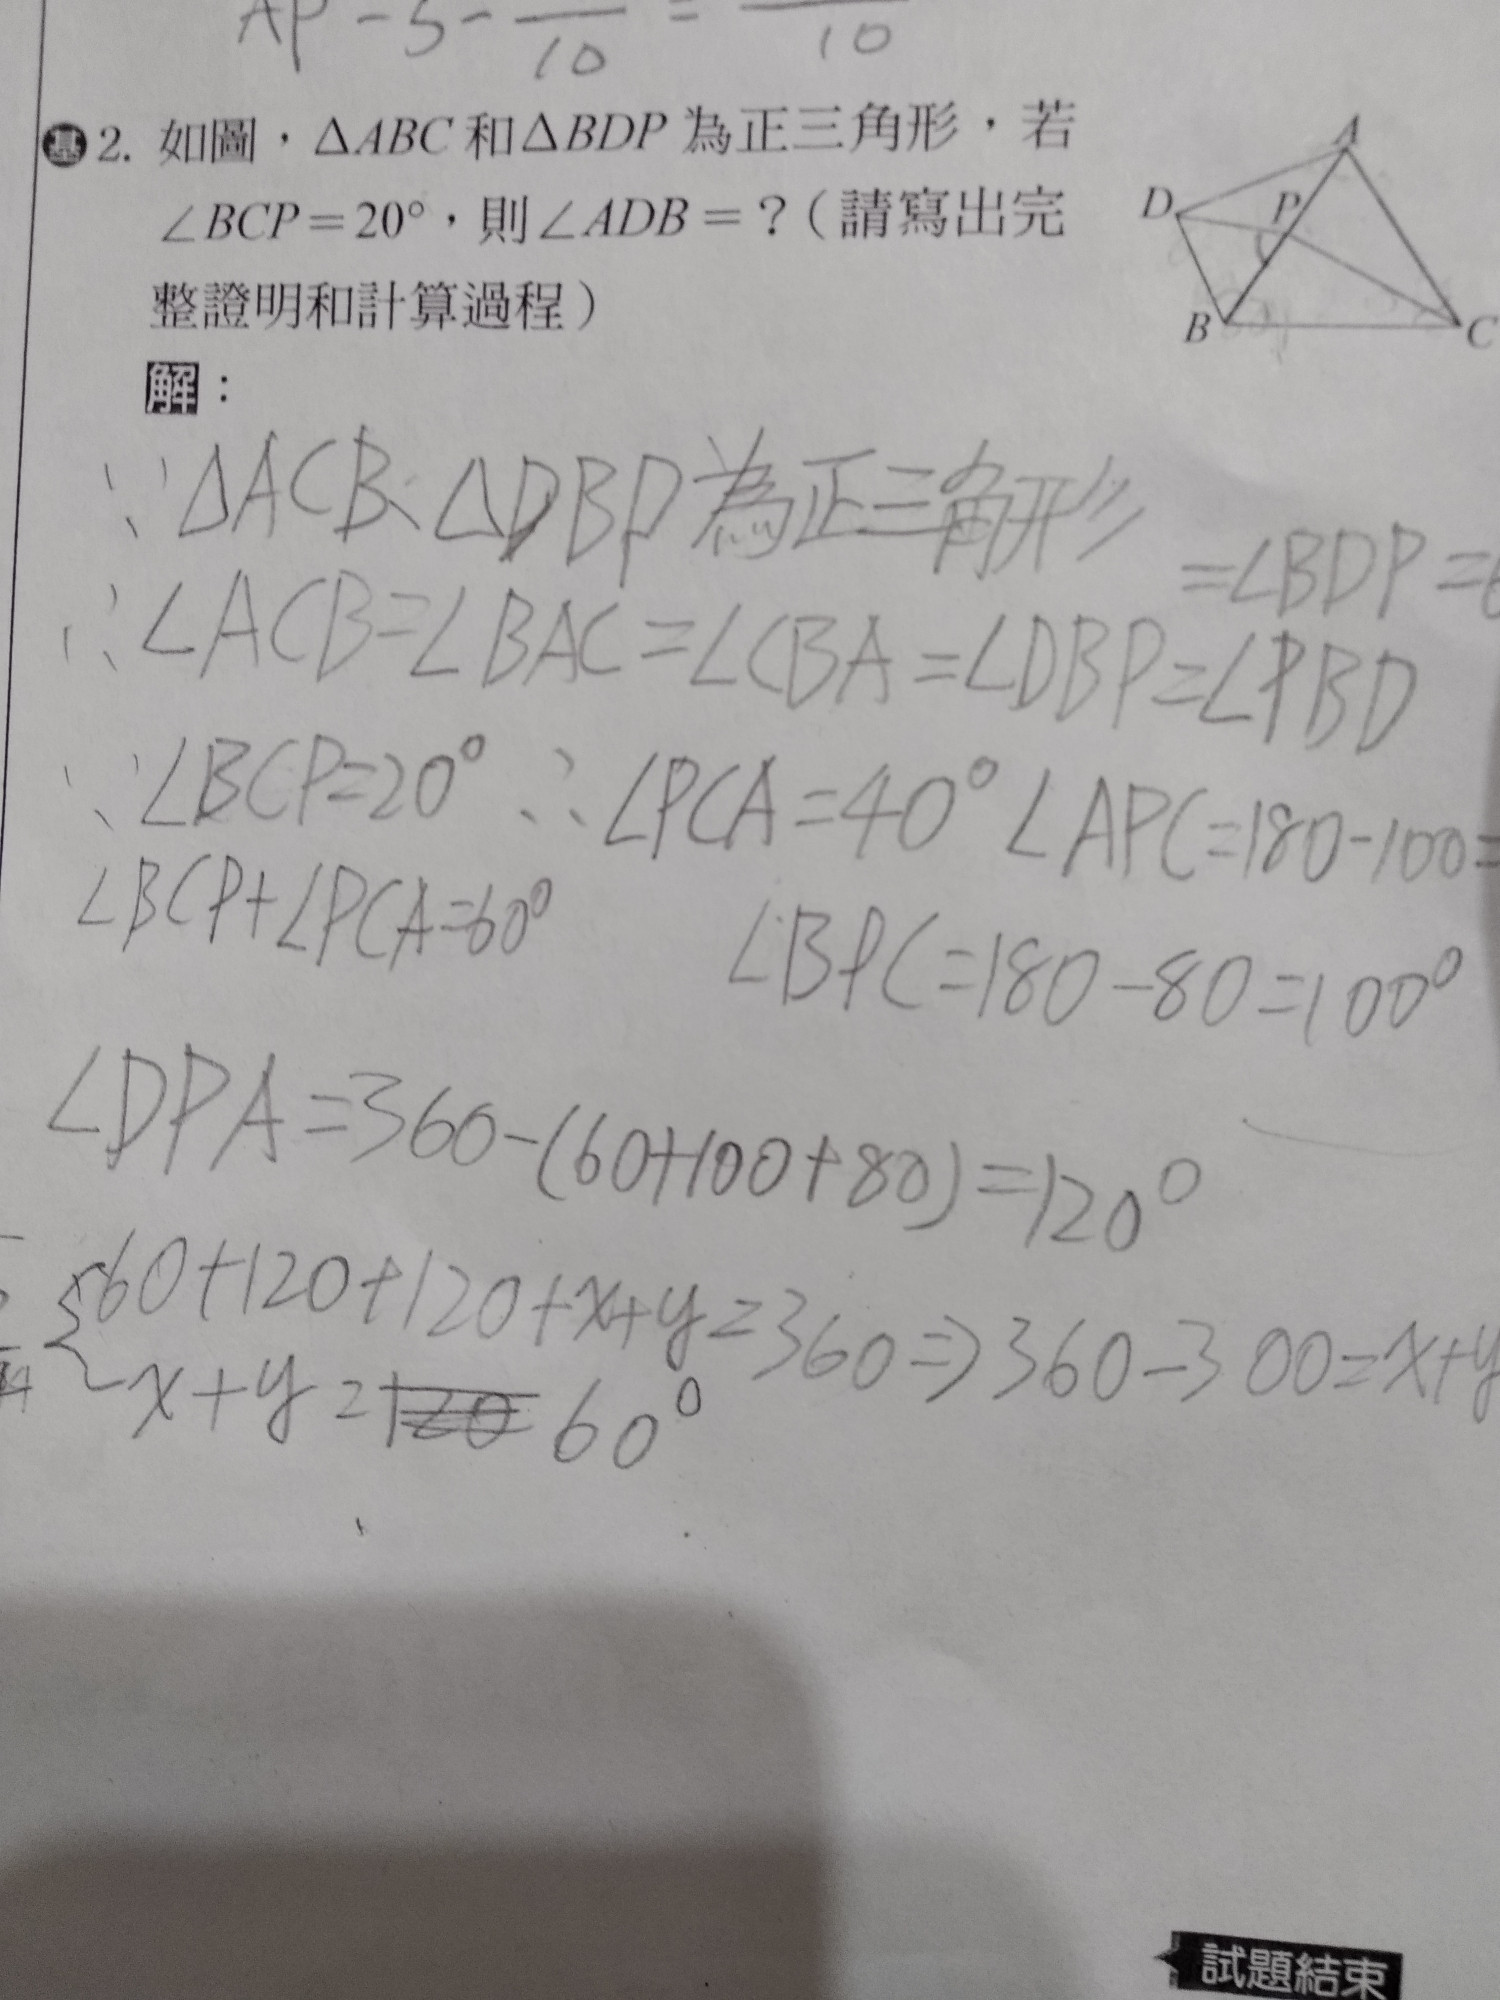 AP-5-
10
=
10
基 2. 如圖，ΔABC 和 ΔBDP 為正三角形，若
∠BCP＝20°，則∠ADB＝？（請寫出完
整證明和計算過程）
A
D
P
B
C
解：
∵ΔACB、ΔDBP為正三角形
=∠BDP=
∴∠ACB=∠BAC=∠CBA=∠DBP=∠PBD
∵∠BCP=20° ∴∠PCA=40° ∠APC=180-100=
∠BCP+∠PCA=60°
∠BPC=180-80=100°
∠DPA=360-(60+100+80)=120°
60+120+120+x+y=360⇒360-300=x+y
x+y=120 60°
試題結束